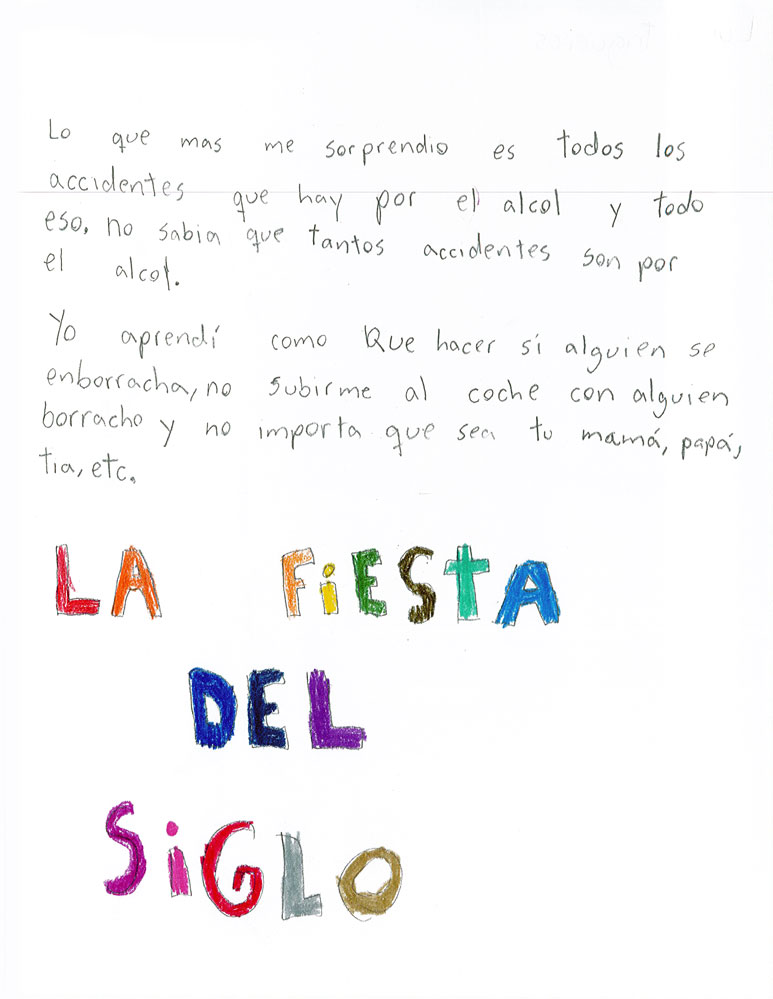 Lo que mas me sorprendio es todos los
accidentes que hay por el alcol y todo
eso, no sabia que tantos accidentes son por
el alcol.
Yo aprendí como Que hacer si alguien se
enborracha, no subirme al coche con alguien
borracho y no importa que sea tu mamá, papá,
tia, etc.
LA FiESTA
DEL
SiGLO